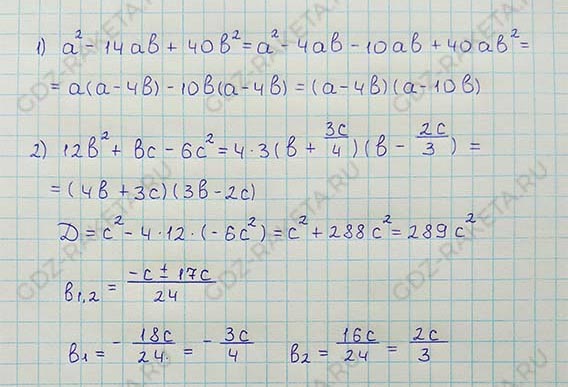 1) a² - 14ab + 40b² = a² - 4ab - 10ab + 40ab² =
= a(a - 4b) - 10b(a - 4b) = (a - 4b)(a - 10b)
2) 12b² + bc - 6c² = 4·3(b + 3c/4)(b - 2c/3) =
= (4b + 3c)(3b - 2c)
D = c² - 4·12·(-6c²) = c² + 288c² = 289c²
b₁,₂ = (-c ± 17c)/24
b₁ = - 18c/24 = - 3c/4 b₂ = 16c/24 = 2c/3
GDZ-RAKETA.RU